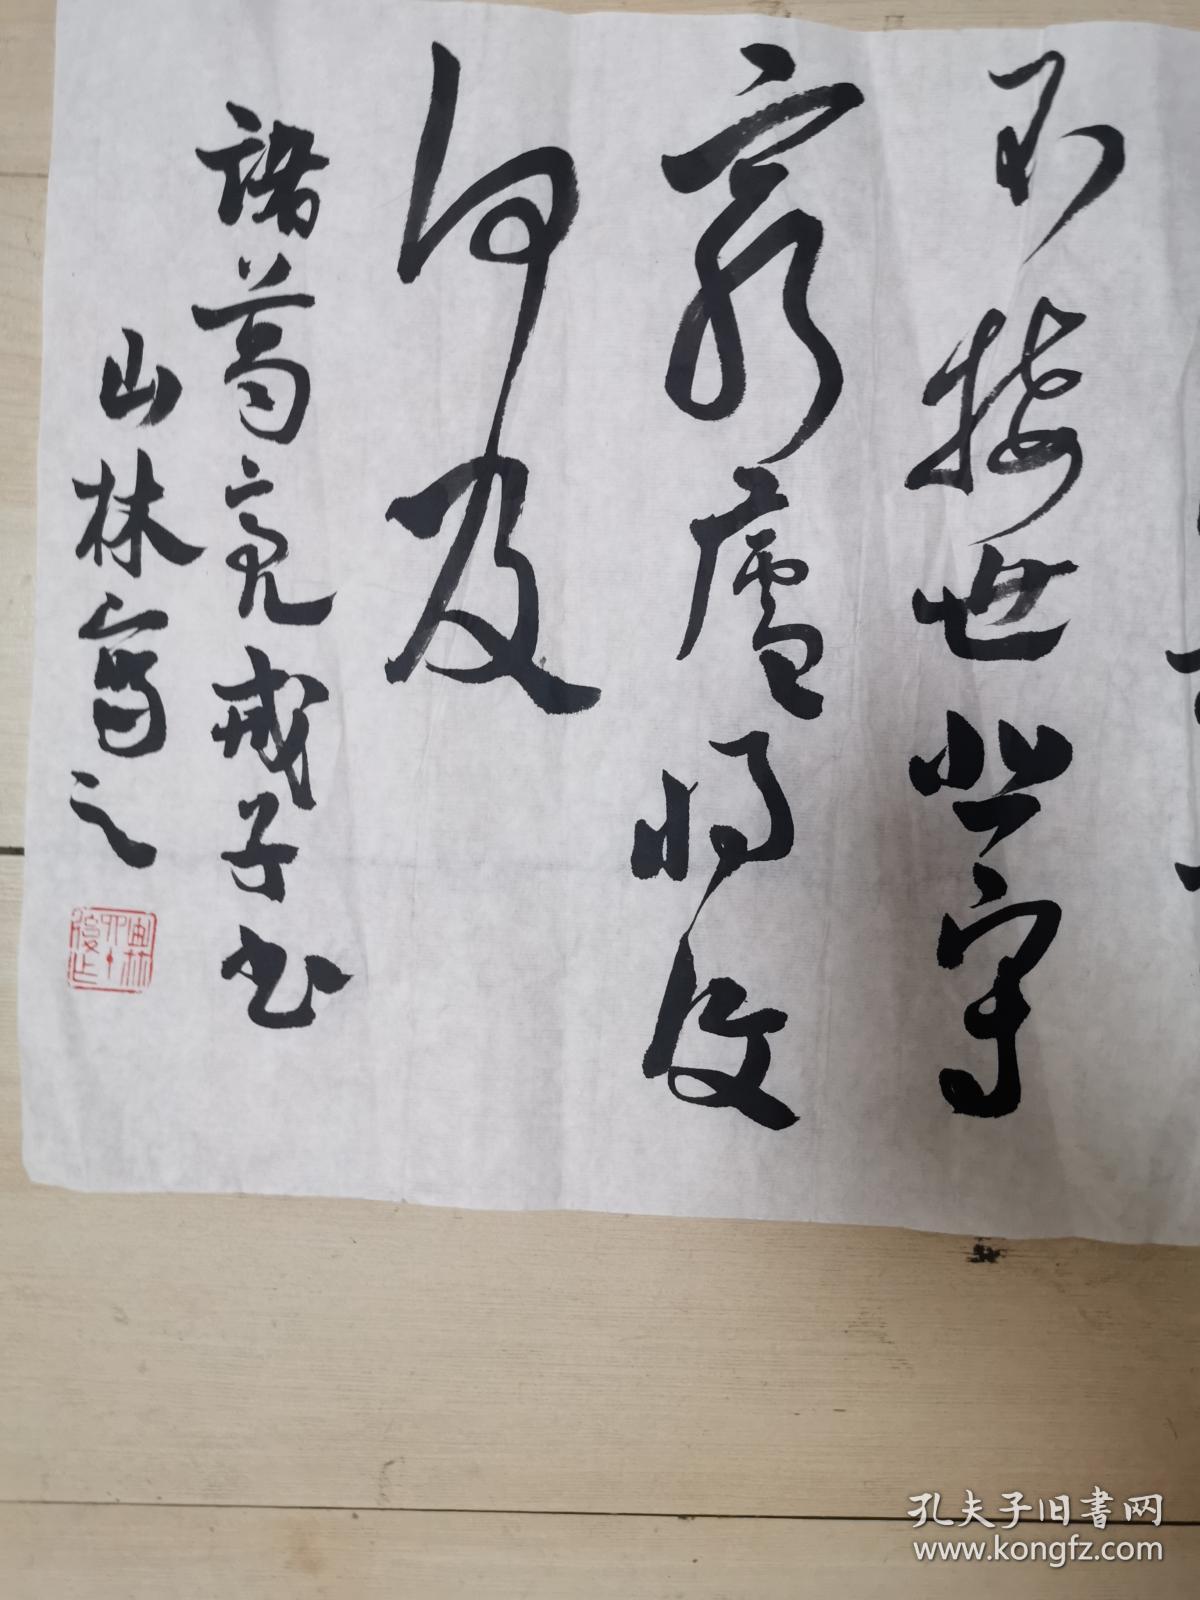 不接世悲守
窮廬將復
何及
諸葛亮戒子书
山林寫之
孔夫子旧書网
www.kongfz.com